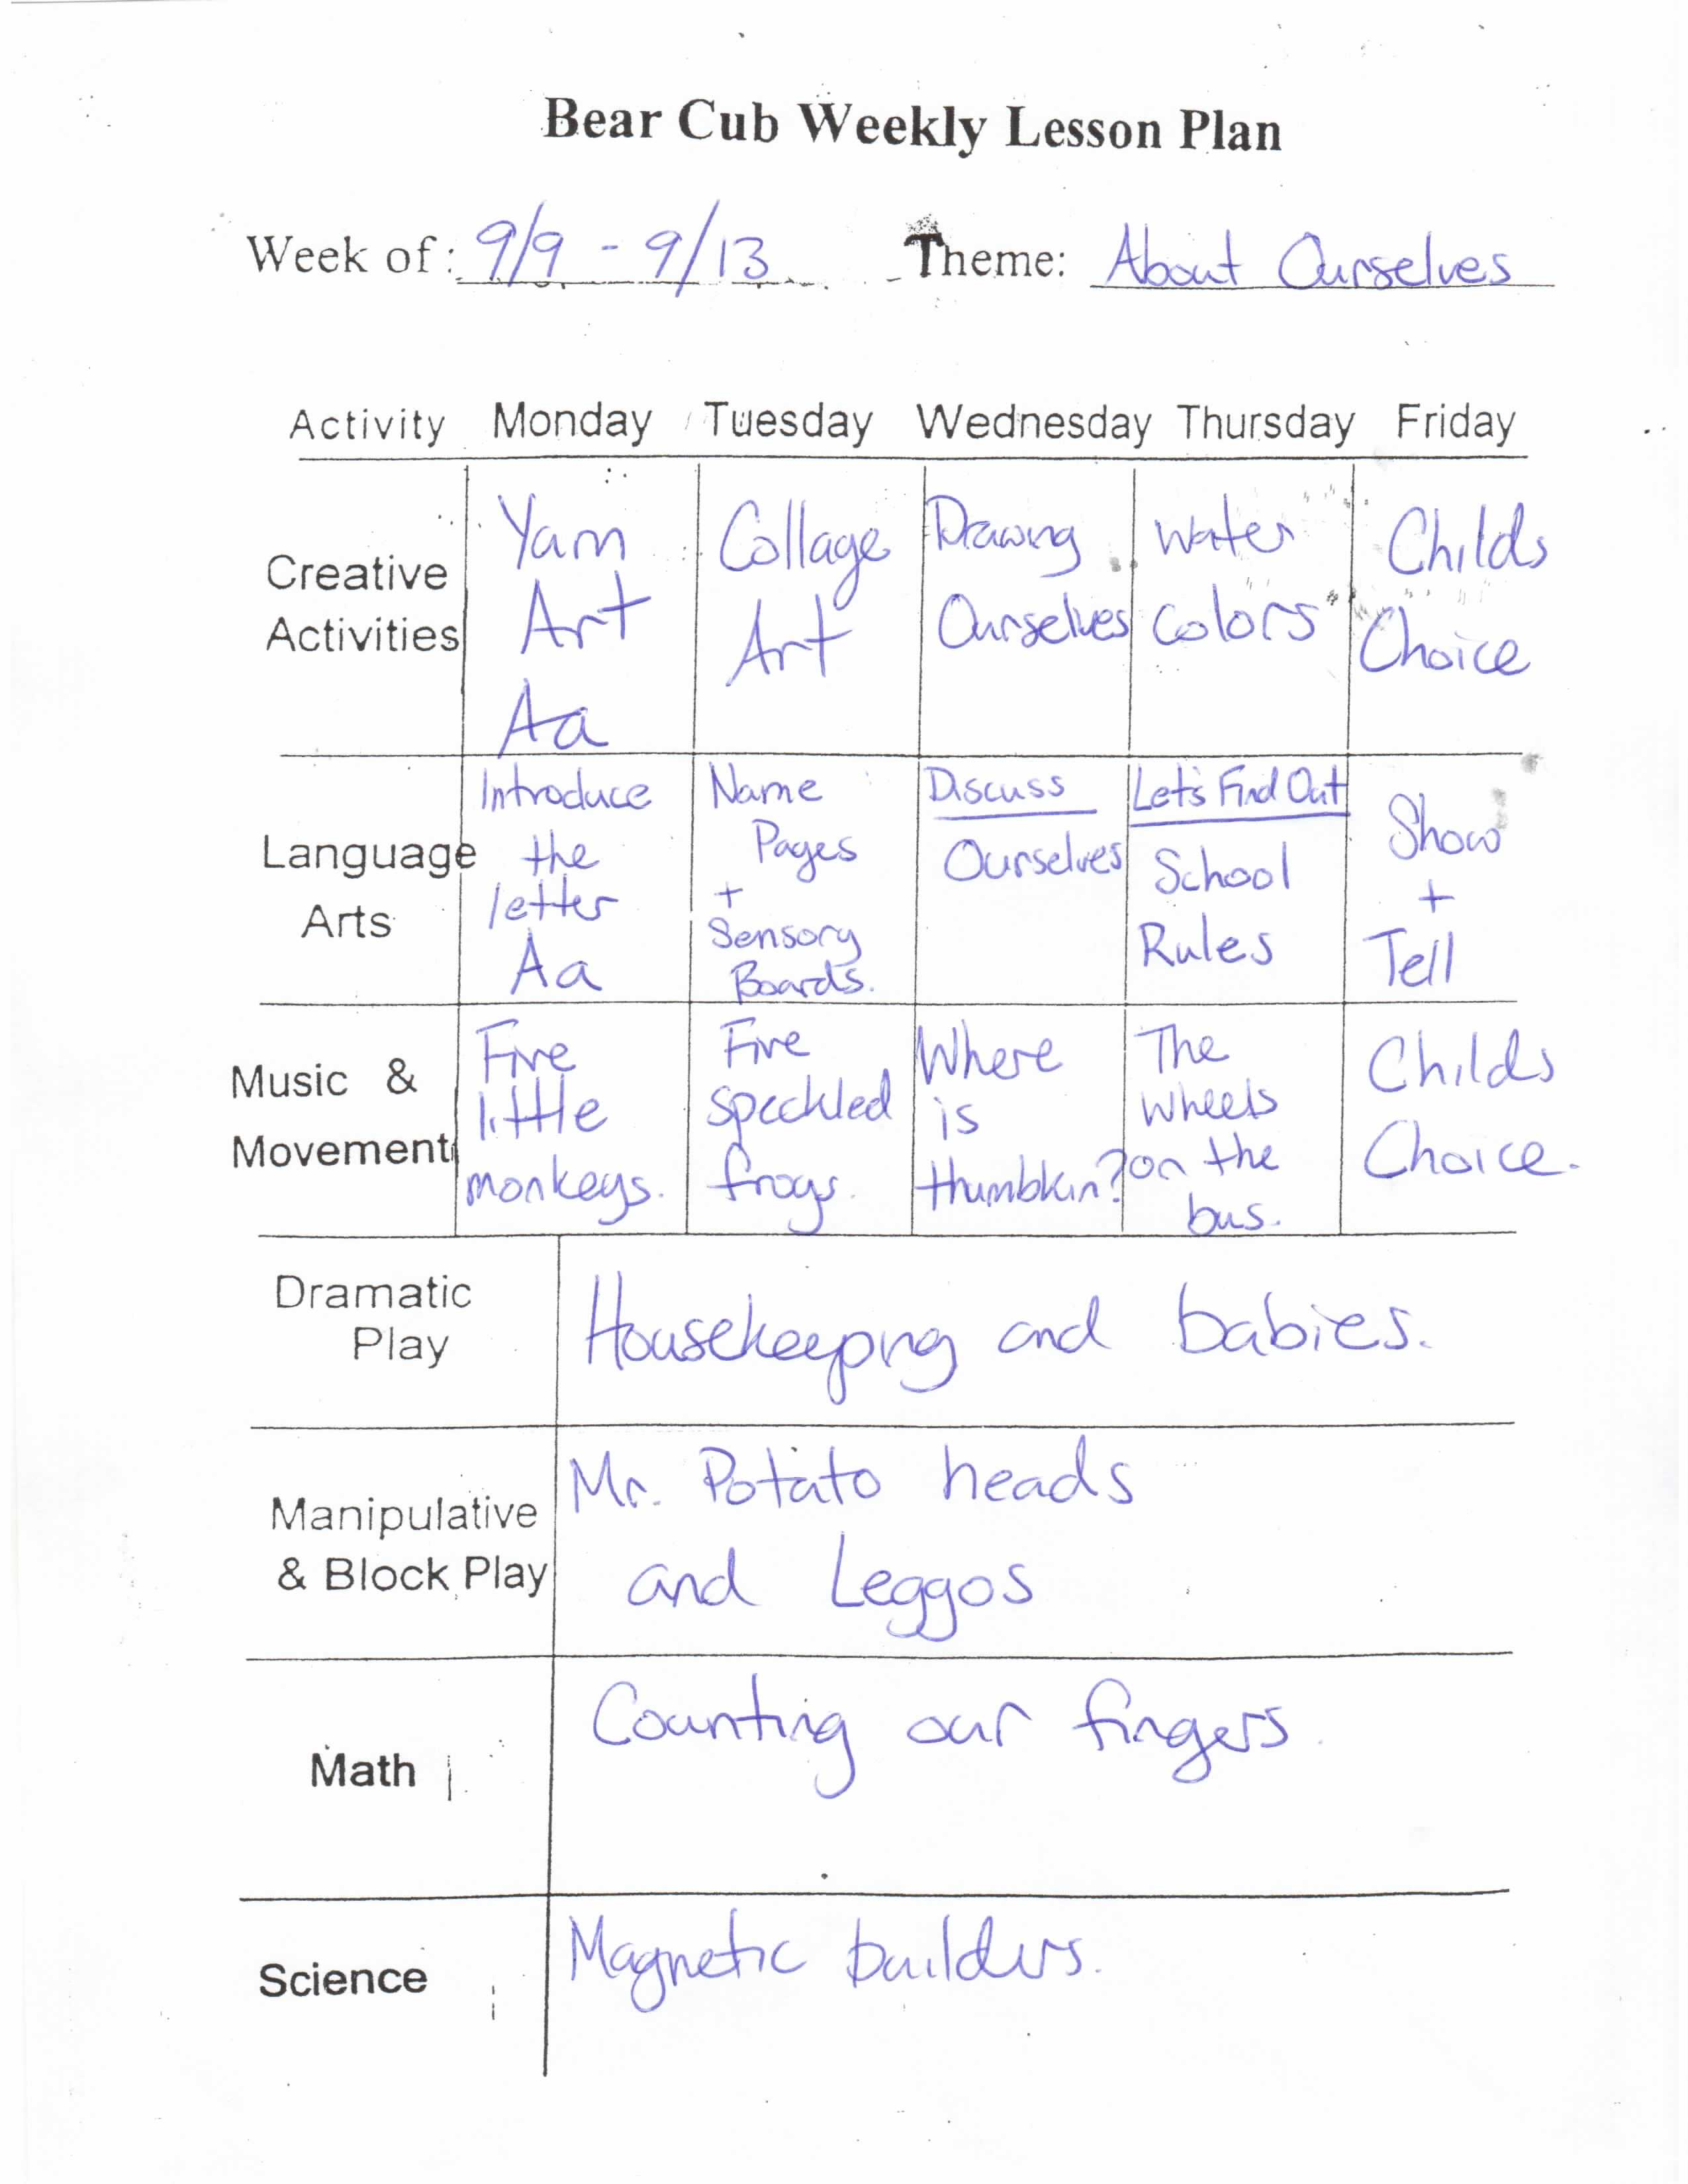 Bear Cub Weekly Lesson Plan
Week of: 9/9 - 9/13 Theme: About Ourselves
Activity Monday Tuesday Wednesday Thursday Friday
Creative
Activities
Yarn
Art
Aa
Collage
Art
Drawing
Ourselves
Water
Colors
Childs
Choice
Language
Arts
Introduce
the
letter
Aa
Name
Pages
+
Sensory
Boards.
Discuss
Ourselves
Let's Find Out
School
Rules
Show
+
Tell
Music &
Movement
Five
little
monkeys.
Five
speckled
frogs.
Where
is
thumbkin?
The
wheels
on the
bus.
Childs
Choice.
Dramatic
Play
Housekeeping and babies.
Manipulative
& Block Play
Mr. Potato heads
and Leggos
Math
Counting our fingers
Science
Magnetic builders.